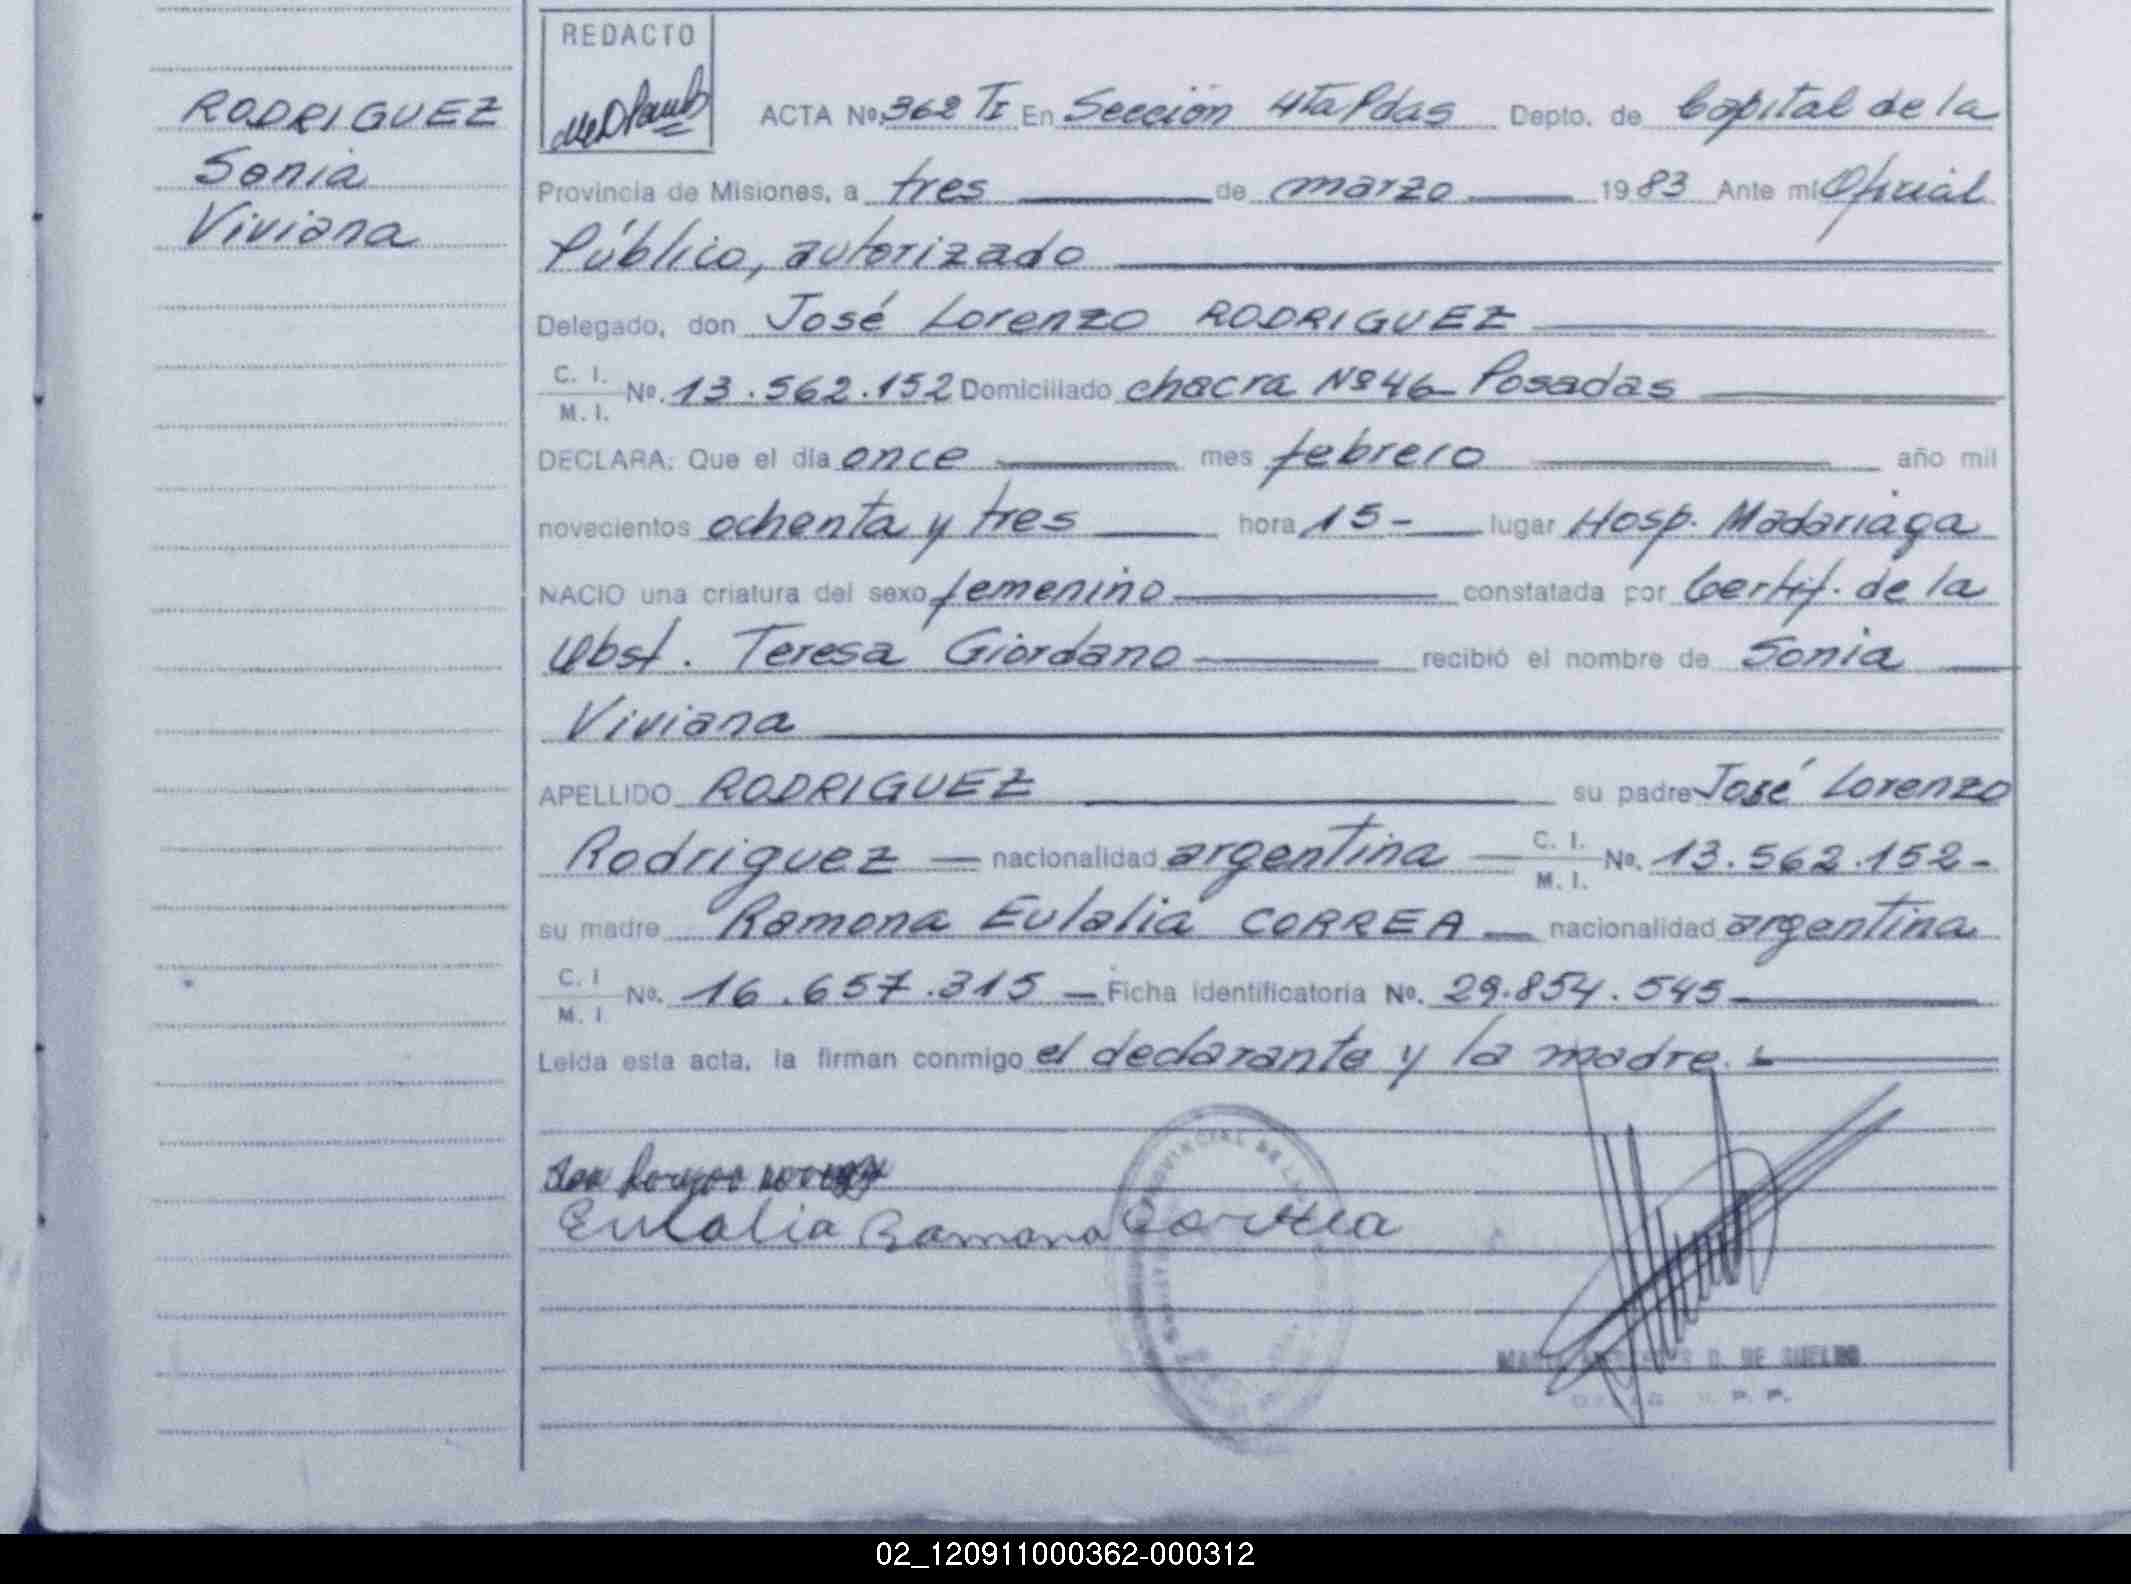 RODRIGUEZ
Sonia
Viviana
REDACTO
ACTA Nº 362 TI En Sección 4ta Pdas Depto. de Capital de la
Provincia de Misiones, a tres de marzo 1983 Ante mí Oficial
Público, autorizado
Delegado, don José Lorenzo RODRIGUEZ
C. I.
M. I. Nº. 13.562.152 Domiciliado chacra Nº 46 Posadas
DECLARA: Que el día once mes febrero año mil
novecientos ochenta y tres hora 15- lugar Hosp. Madariaga
NACIO una criatura del sexo femenino constatada por Certif. de la
Obst. Teresa Giordano recibió el nombre de Sonia
Viviana
APELLIDO RODRIGUEZ su padre José Lorenzo
Rodriguez nacionalidad argentina C. I.
M. I. Nº. 13.562.152-
su madre Ramona Eulalia CORREA nacionalidad argentina
C. I
M. I Nº. 16.657.315 Ficha identificatoria Nº. 29.854.545
Leída esta acta, la firman conmigo el declarante y la madre.
Eulalia Ramona Correa
PROVINCIAL DE
D. DE
02_120911000362-000312